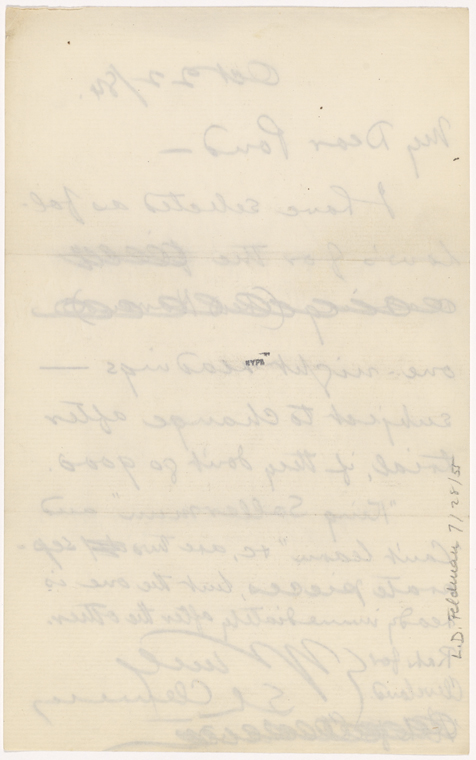 Oct 22/84.
My Dear Pond —
I have selected as fol-
lows for the
one-night readings —
subject to change after
trial, if they don't go good.
"King Sollermun" and
"Can't learn" &c, are two sep-
arate pieces, but the one is
read immediately after the other.
S L Clemens
NYPL
L.D. Feldman 7/28/58